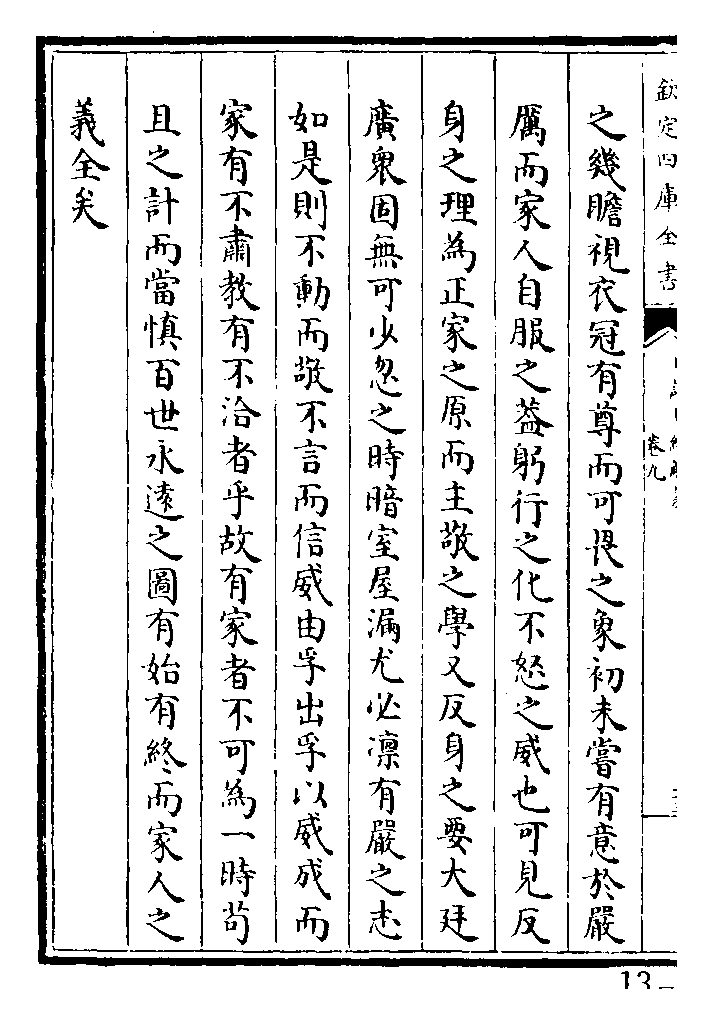 欽定四庫全書
卷九
之幾瞻視衣冠有尊而可畏之象初未嘗有意於嚴
厲而家人自服之葢躬行之化不怒之威也可見反
身之理為正家之原而主敬之學又反身之要大廷
廣衆固無可少忽之時暗室屋漏尤必凛有嚴之志
如是則不動而敬不言而信威由孚出孚以威成而
家有不肅教有不洽者乎故有家者不可為一時苟
且之計而當慎百世永遠之圖有始有終而家人之
義全矣
13